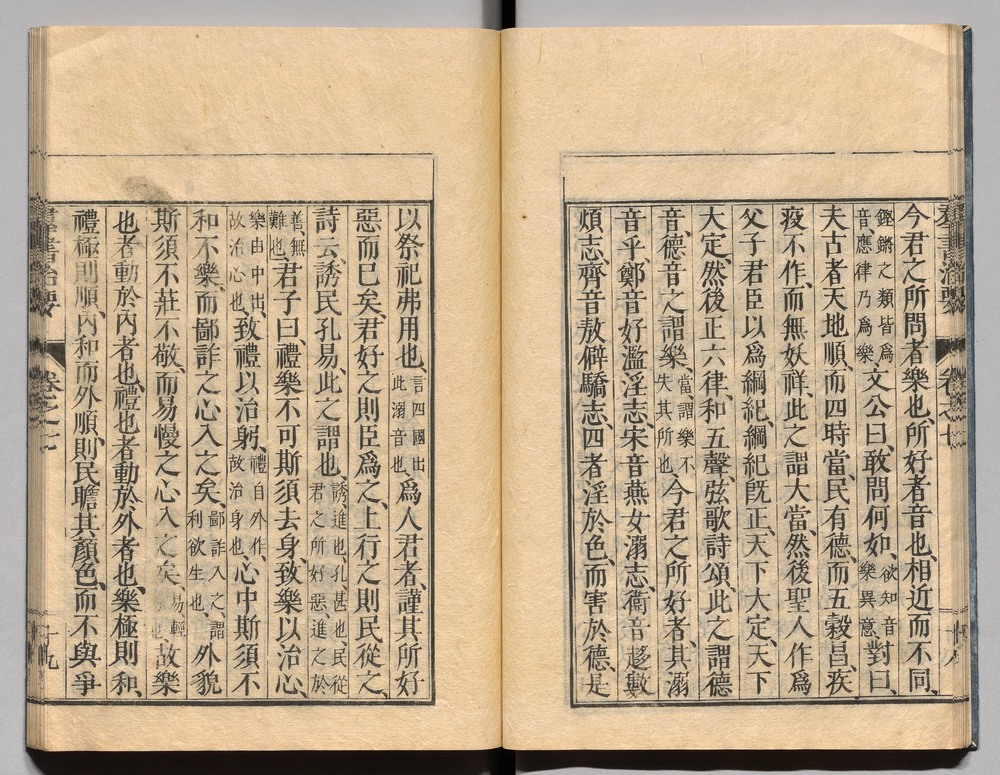 今君之所問者樂也、所好者音也、相近而不同、
鏗鏘之類皆爲
音、應律乃爲樂
文公曰、敢問何如、
欲知音
樂異意
對曰、
夫古者天地順、而四時當、民有德而五穀昌、疾
疫不作、而無妖祥、此之謂大當、然後聖人作爲
父子君臣以爲綱紀、綱紀既正、天下大定、天下
大定、然後正六律、和五聲、弦歌詩頌、此之謂德
音、德音之謂樂、
當謂樂不
失其所也
今君之所好者、其溺
音乎、鄭音好濫淫志、宋音燕女溺志、衞音趍數
煩志、齊音敖僻驕志、四者淫於色、而害於德、是
羣書治要 卷之七 十八
以祭祀弗用也、
言四國出
此溺音也
爲人君者、謹其所好
惡而已矣、君好之則臣爲之、上行之則民從之、
詩云、誘民孔易、此之謂也、
誘進也、孔甚也、民從
君之所好惡進之於
善、無
難也、
君子曰、禮樂不可斯須去身、致樂以治心、
樂由中出、
故治心也、
致禮以治躬、
禮自外作、
故治身也、
心中斯須不
和不樂、而鄙詐之心入之矣、
鄙詐入之、謂
利欲生也、
外貌
斯須不莊不敬、而易慢之心入之矣、
易輕
也、
故樂
也者動於內者也、禮也者動於外者也、樂極則和、
禮極則順、內和而外順、則民瞻其顏色、而不與爭
羣書治要 卷之七 十九